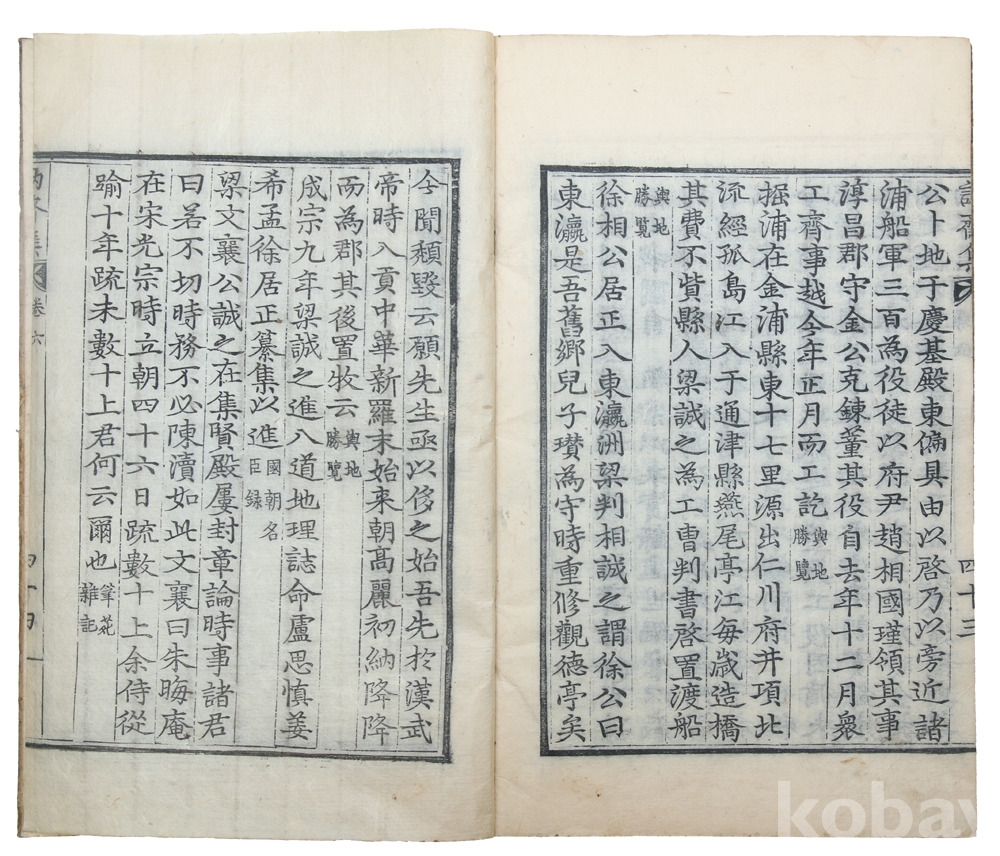 訥齋集
四十三
公卜地于慶基殿東偏具由以啓乃以旁近諸
浦船軍三百為役徒以府尹趙相國瑾領其事
淳昌郡守金公克鍊董其役自去年十二月衆
工齊事越今年正月而工訖輿地勝覽
掘浦在金浦縣東十七里源出仁川府井項北
流經孤島江入于通津縣燕尾亭江每歲造橋
其費不貲縣人梁誠之為工曹判書啓置渡船
輿地勝覽
徐相公居正入東瀛洲梁判相誠之謂徐公曰
東瀛是吾舊鄉兒子瓚為守時重修觀德亭矣
今聞頹毀云願先生亟以侈之始吾先於漢武
帝時入貢中華新羅末始来朝高麗初納降降
而為郡其後置牧云輿地勝覽
成宗九年梁誠之進八道地理誌命盧思慎姜
希孟徐居正纂集以進國朝名臣録
梁文襄公誠之在集賢殿屢封章論時事諸君
曰若不切時務不必陳瀆如此文襄曰朱晦庵
在宋光宗時立朝四十六日疏數十上余侍從
踰十年疏未數十上君何云爾也筆苑雜記
卷六
kobay